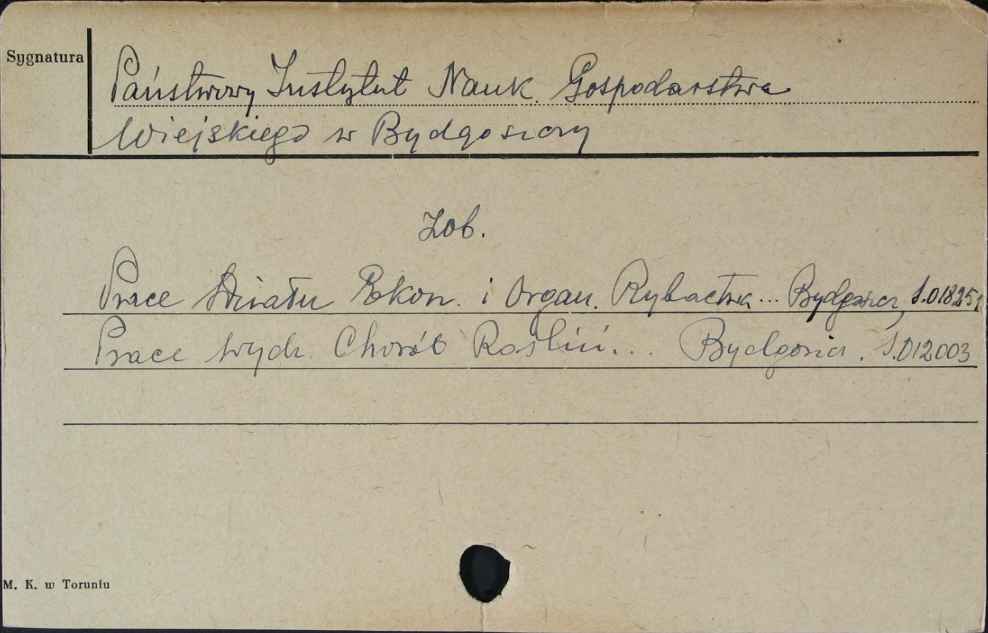 Sygnatura
Państwowy Instytut Nauk. Gospodarstwa
Wiejskiego w Bydgoszczy
Zob.
Prace Działu Ekon. i Organ. Rybactwa... Bydgoszcz, S.01825
Prace Wydz. Chorób Roślin... Bydgoszcz. S.012003
M. K. w Toruniu